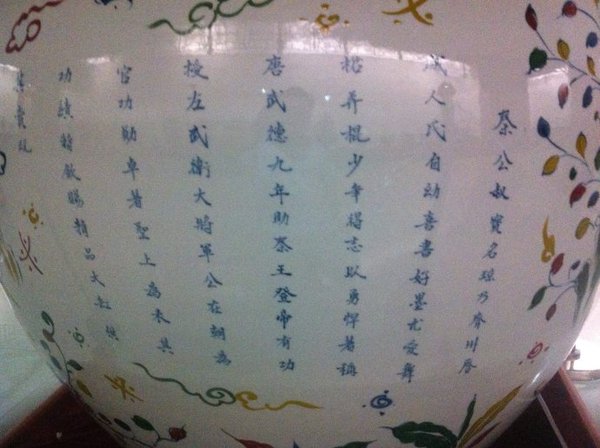 秦公叔寶名琼乃齊州歷
城人氏自幼喜書好墨尤愛舞
槍弄棍少年得志以勇悍著稱
唐武德九年助秦王登帝有功
授左武衛大將軍公在朝為
官功勳卓著聖上為表其
功績特欽賜精品大缸供
其賞玩